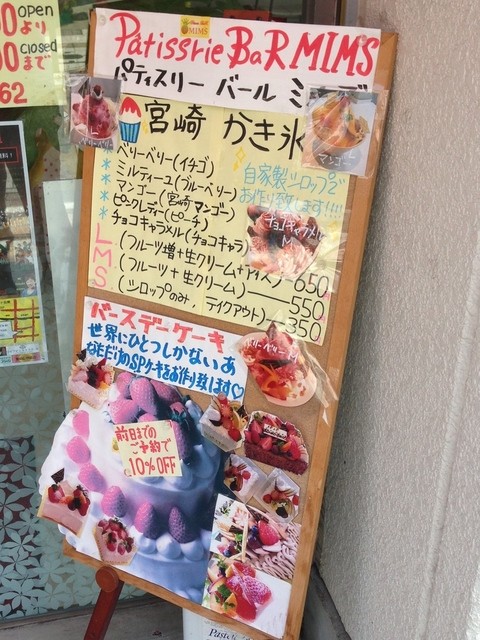 open
0より
closed
0まで
62
MIMS
Pâtissrie BaR MIMS
パティスリー バール ミ
宮崎 かき氷
マンゴー
ベリーベリー(イチゴ)
ミルティーユ(ブルーベリー)
マンゴー(宮崎マンゴー)
ピークレディー(ピーチ)
チョコキャラメル(チョコキャラ)
自家製シロップで
お作り致します!!!!
チョコキャラメル
M
L (フルーツ増+生クリーム+アイス) 650
M (フルーツ+生クリーム) 550
S (シロップのみ、テイクアウト) 350
バースデーケーキ
世界にひとつしかないあ
なただけのSPケーキをお作り致します♡
ベリーベリー
前日までの
ご予約で
10%OFF